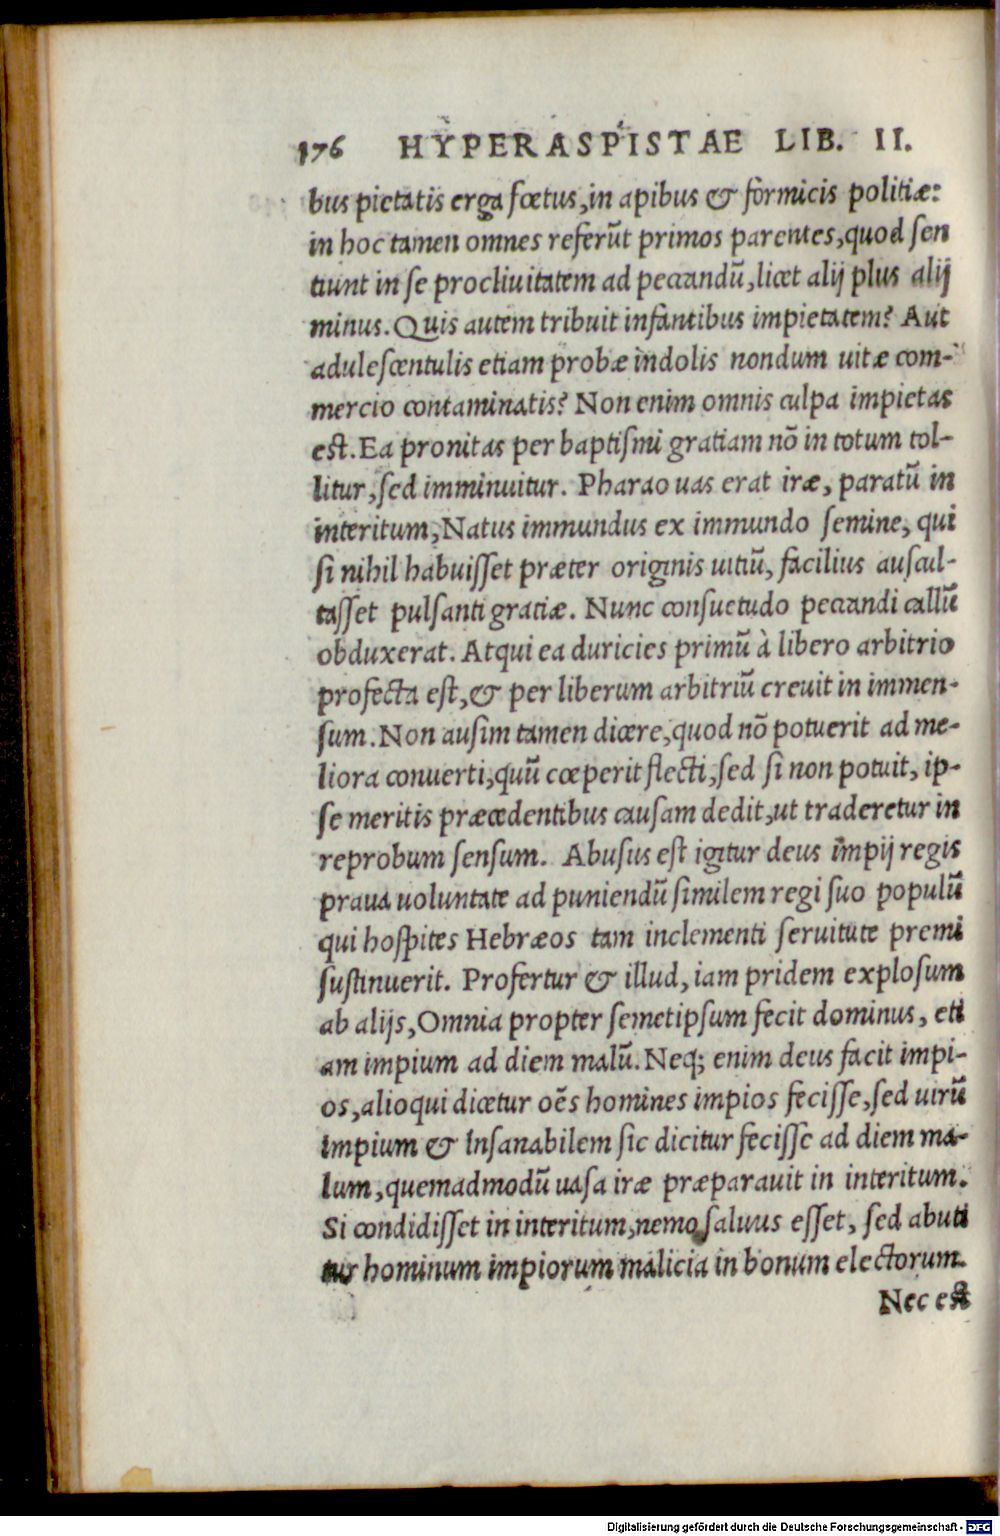 176 HYPERASPISTAE LIB. II.
bus pietatis erga fœtus, in apibus & formicis politiæ:
in hoc tamen omnes referũt primos parentes, quod sen
tiunt in se procliuitatem ad peccandũ, licet alij plus alij
minus. Quis autem tribuit infantibus impietatem? Aut
adulescentulis etiam probæ indolis nondum uitæ com-
mercio contaminatis? Non enim omnis culpa impietas
est. Ea pronitas per baptismi gratiam nõ in totum tol-
litur, sed imminuitur. Pharao uas erat iræ, paratũ in
interitum, Natus immundus ex immundo semine, qui
si nihil habuisset præter originis uitiũ, facilius auscul-
tasset pulsanti gratiæ. Nunc consuetudo peccandi callũ
obduxerat. Atqui ea duricies primũ à libero arbitrio
profecta est, & per liberum arbitriũ creuit in immen-
sum. Non ausim tamen dicere, quod nõ potuerit ad me-
liora conuerti, quũ cœperit flecti, sed si non potuit, ip-
se meritis præcedentibus causam dedit, ut traderetur in
reprobum sensum. Abusus est igitur deus impij regis
praua uoluntate ad puniendũ similem regi suo populũ
qui hospites Hebræos tam inclementi seruitute premi
sustinuerit. Profertur & illud, iam pridem explosum
ab alijs, Omnia propter semetipsum fecit dominus, eti
am impium ad diem malũ. Neq; enim deus facit impi-
os, alioqui dicetur oẽs homines impios fecisse, sed uirũ
impium & insanabilem sic dicitur fecisse ad diem ma-
lum, quemadmodũ uasa iræ præparauit in interitum.
Si condidisset in interitum, nemo saluus esset, sed abuti
tur hominum impiorum malicia in bonum electorum.
Nec est
Digitalisierung gefördert durch die Deutsche Forschungsgemeinschaft - DFG